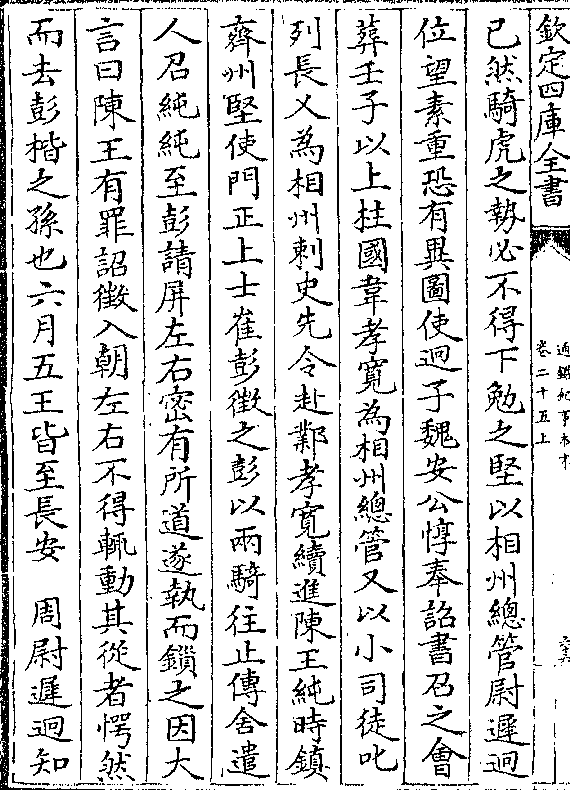 欽定四庫全書
通鑑紀事本末
卷二十五上
已然騎虎之勢必不得下勉之堅以相州總管尉遲迥
位望素重恐有異圖使迥子魏安公惇奉詔書召之會
葬壬子以上柱國韋孝寛為相州總管又以小司徒叱
列長乂為相州刺史先令赴鄴孝寛續進陳王純時鎮
齊州堅使門正上士崔彭徵之彭以兩騎往止傳舍遣
人召純純至彭請屏左右密有所道遂執而鎖之因大
言曰陳王有罪詔徵入朝左右不得輒動其從者愕然
而去彭楷之孫也六月五王皆至長安　周尉遲迥知